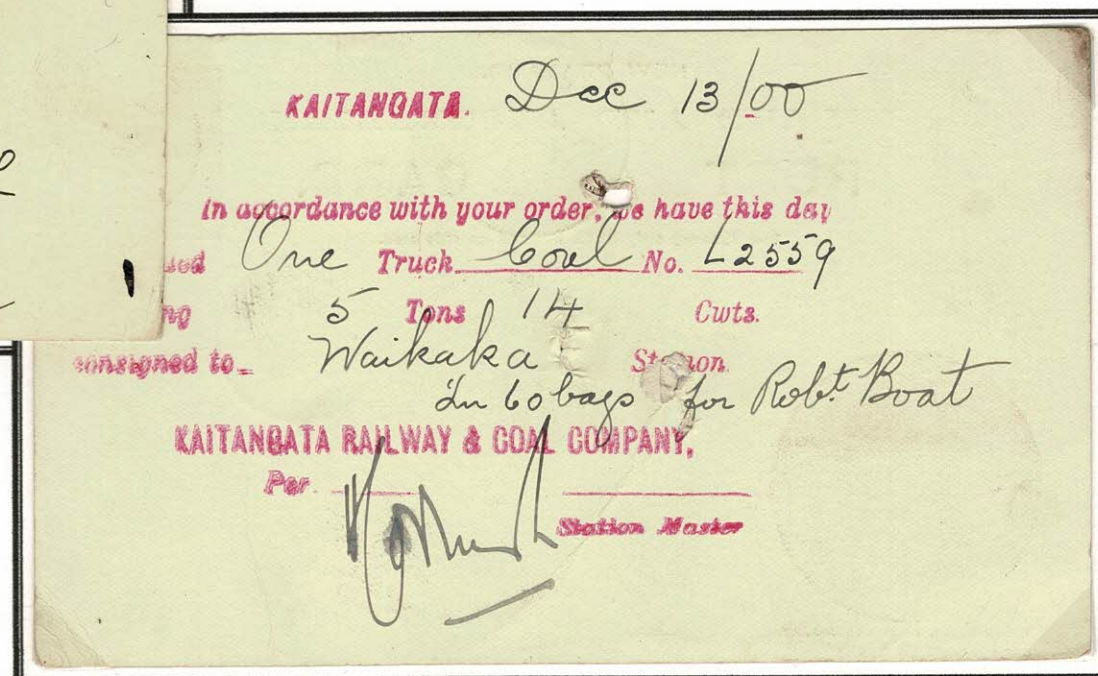 KAITANGATA. Dec 13/00
In accordance with your order, we have this day
One Truck Coal No. L2559
5 Tons 14 Cwts.
consigned to Waikaka Station
In 60 bags for Robt. Boat
KAITANGATA RAILWAY & COAL COMPANY,
Per
Station Master